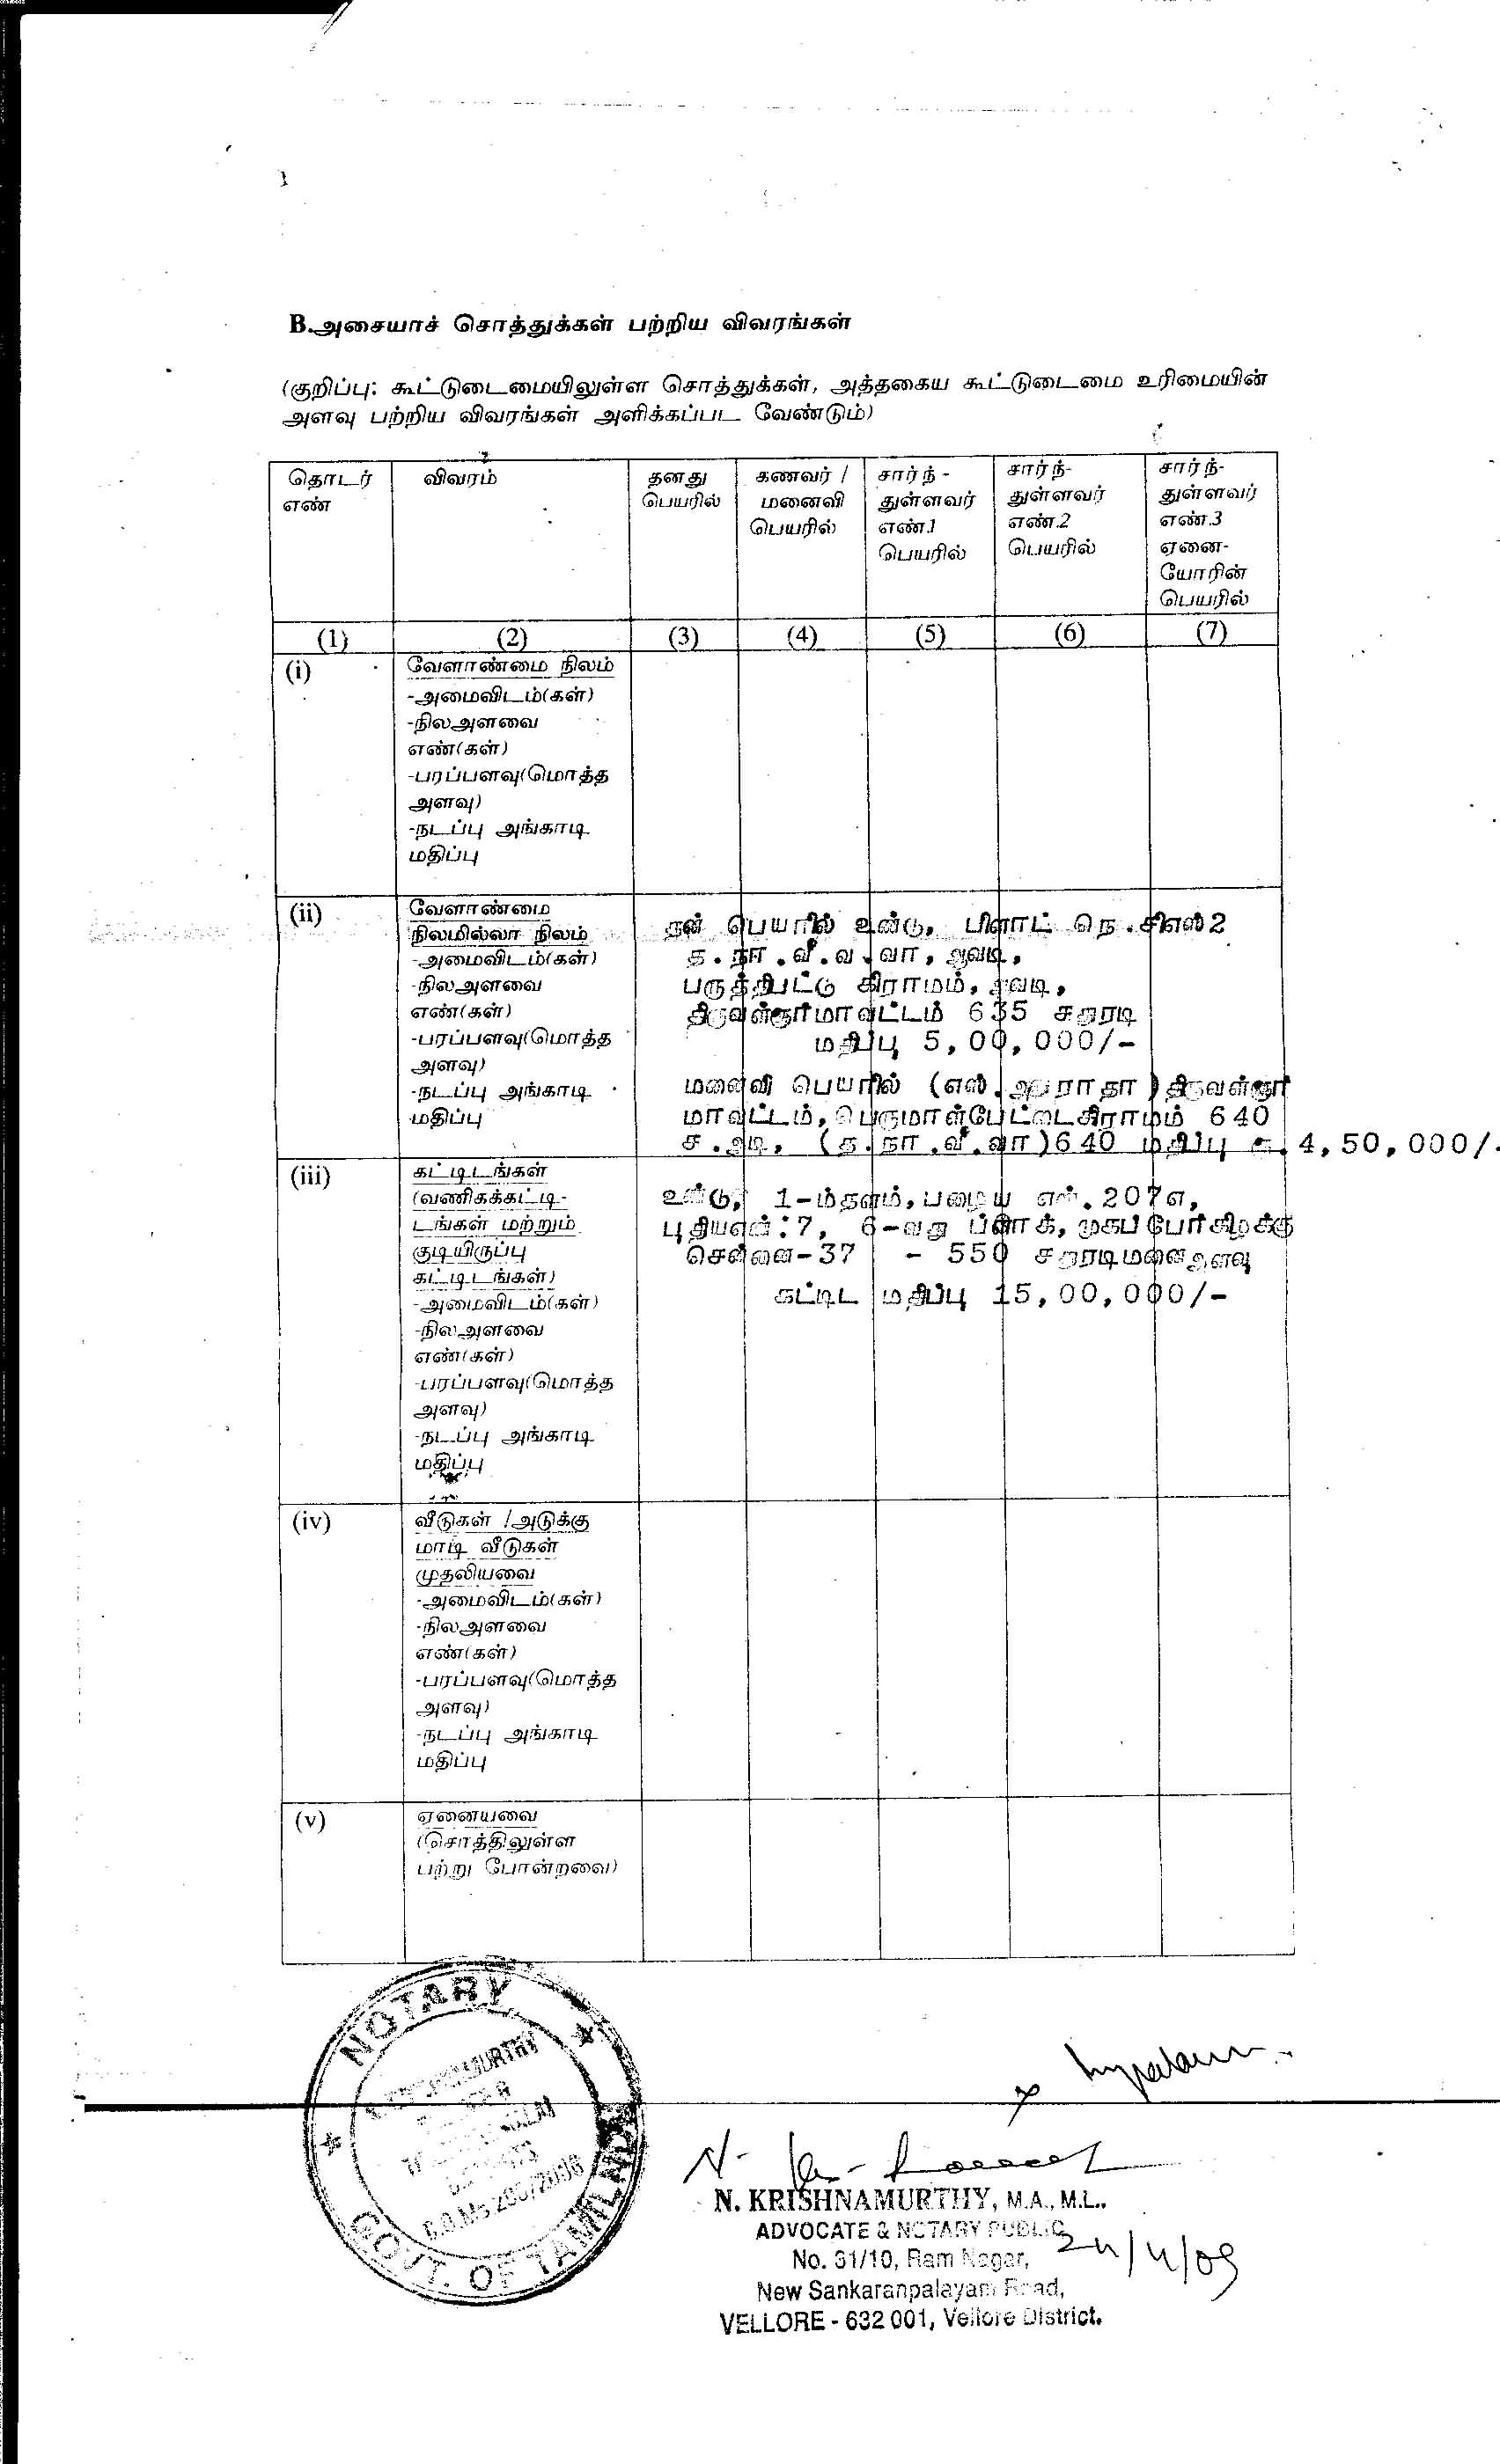 B.அசையாச் சொத்துக்கள் பற்றிய விவரங்கள்
(குறிப்பு: கூட்டுடைமையிலுள்ள சொத்துக்கள், அத்தகைய கூட்டுடைமை உரிமையின்
அளவு பற்றிய விவரங்கள் அளிக்கப்பட வேண்டும்)
தொடர்
எண்
விவரம்
தனது
பெயரில்
கணவர் /
மனைவி
பெயரில்
சார்ந்-
துள்ளவர்
எண்.1
பெயரில்
சார்ந்-
துள்ளவர்
எண்.2
பெயரில்
சார்ந்-
துள்ளவர்
எண்.3
ஏனை-
யோரின்
பெயரில்
(1) (2) (3) (4) (5) (6) (7)
(i)
வேளாண்மை நிலம்
-அமைவிடம்(கள்)
-நிலஅளவை
எண்(கள்)
-பரப்பளவு(மொத்த
அளவு)
-நடப்பு அங்காடி
மதிப்பு
(ii)
வேளாண்மை
நிலமில்லா நிலம்
-அமைவிடம்(கள்)
-நிலஅளவை
எண்(கள்)
-பரப்பளவு(மொத்த
அளவு)
-நடப்பு அங்காடி
மதிப்பு
என் பெயரில் உண்டு, பிளாட் நெ.சிஎல்2
த.நா.வீ.வ.வா, ஆவடி,
பருத்திபட்டு கிராமம், ஆவடி,
திருவள்ளூர்மாவட்டம் 635 சதுரடி
மதிப்பு 5,00,000/-
மனைவி பெயரில் (எஸ்.அனுராதா)திருவள்ளூர்
மாவட்டம்,பெருமாள்பேட்டைகிராமம் 640
ச.அடி, (த.நா.வீ.வா)640 மதிப்பு ரூ.4,50,000/-
(iii)
கட்டிடங்கள்
(வணிகக்கட்டி-
டங்கள் மற்றும்
குடியிருப்பு
கட்டிடங்கள்)
-அமைவிடம்(கள்)
-நிலஅளவை
எண்(கள்)
-பரப்பளவு(மொத்த
அளவு)
-நடப்பு அங்காடி
மதிப்பு
உண்டு, 1-ம்தளம்,பழைய எண்.207எ,
புதியஎண்:7, 6-வது ப்ளாக், முகப்பேர்கிழக்கு
சென்னை-37 - 550 சதுரடிமனைஅளவு
கட்டிட மதிப்பு 15,00,000/-
(iv)
வீடுகள் /அடுக்கு
மாடி வீடுகள்
முதலியவை
-அமைவிடம்(கள்)
-நிலஅளவை
எண்(கள்)
-பரப்பளவு(மொத்த
அளவு)
-நடப்பு அங்காடி
மதிப்பு
(v)
ஏனையவை
(சொத்திலுள்ள
பற்று போன்றவை)
NOTARY
GOVT. OF TAMILNADU
N. KRISHNAMURTHY, M.A., M.L.,
ADVOCATE & NOTARY PUBLIC
No. 31/10, Ram Nagar,
24/4/09
New Sankaranpalayam Road,
VELLORE - 632 001, Vellore District.